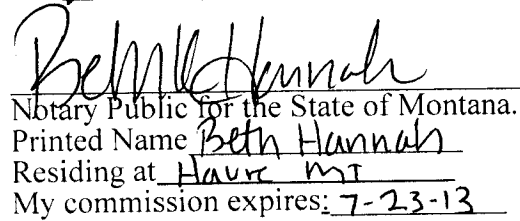 Beth Hannah
Notary Public for the State of Montana.
Printed Name Beth Hannah
Residing at Havre MT
My commission expires: 7-23-13